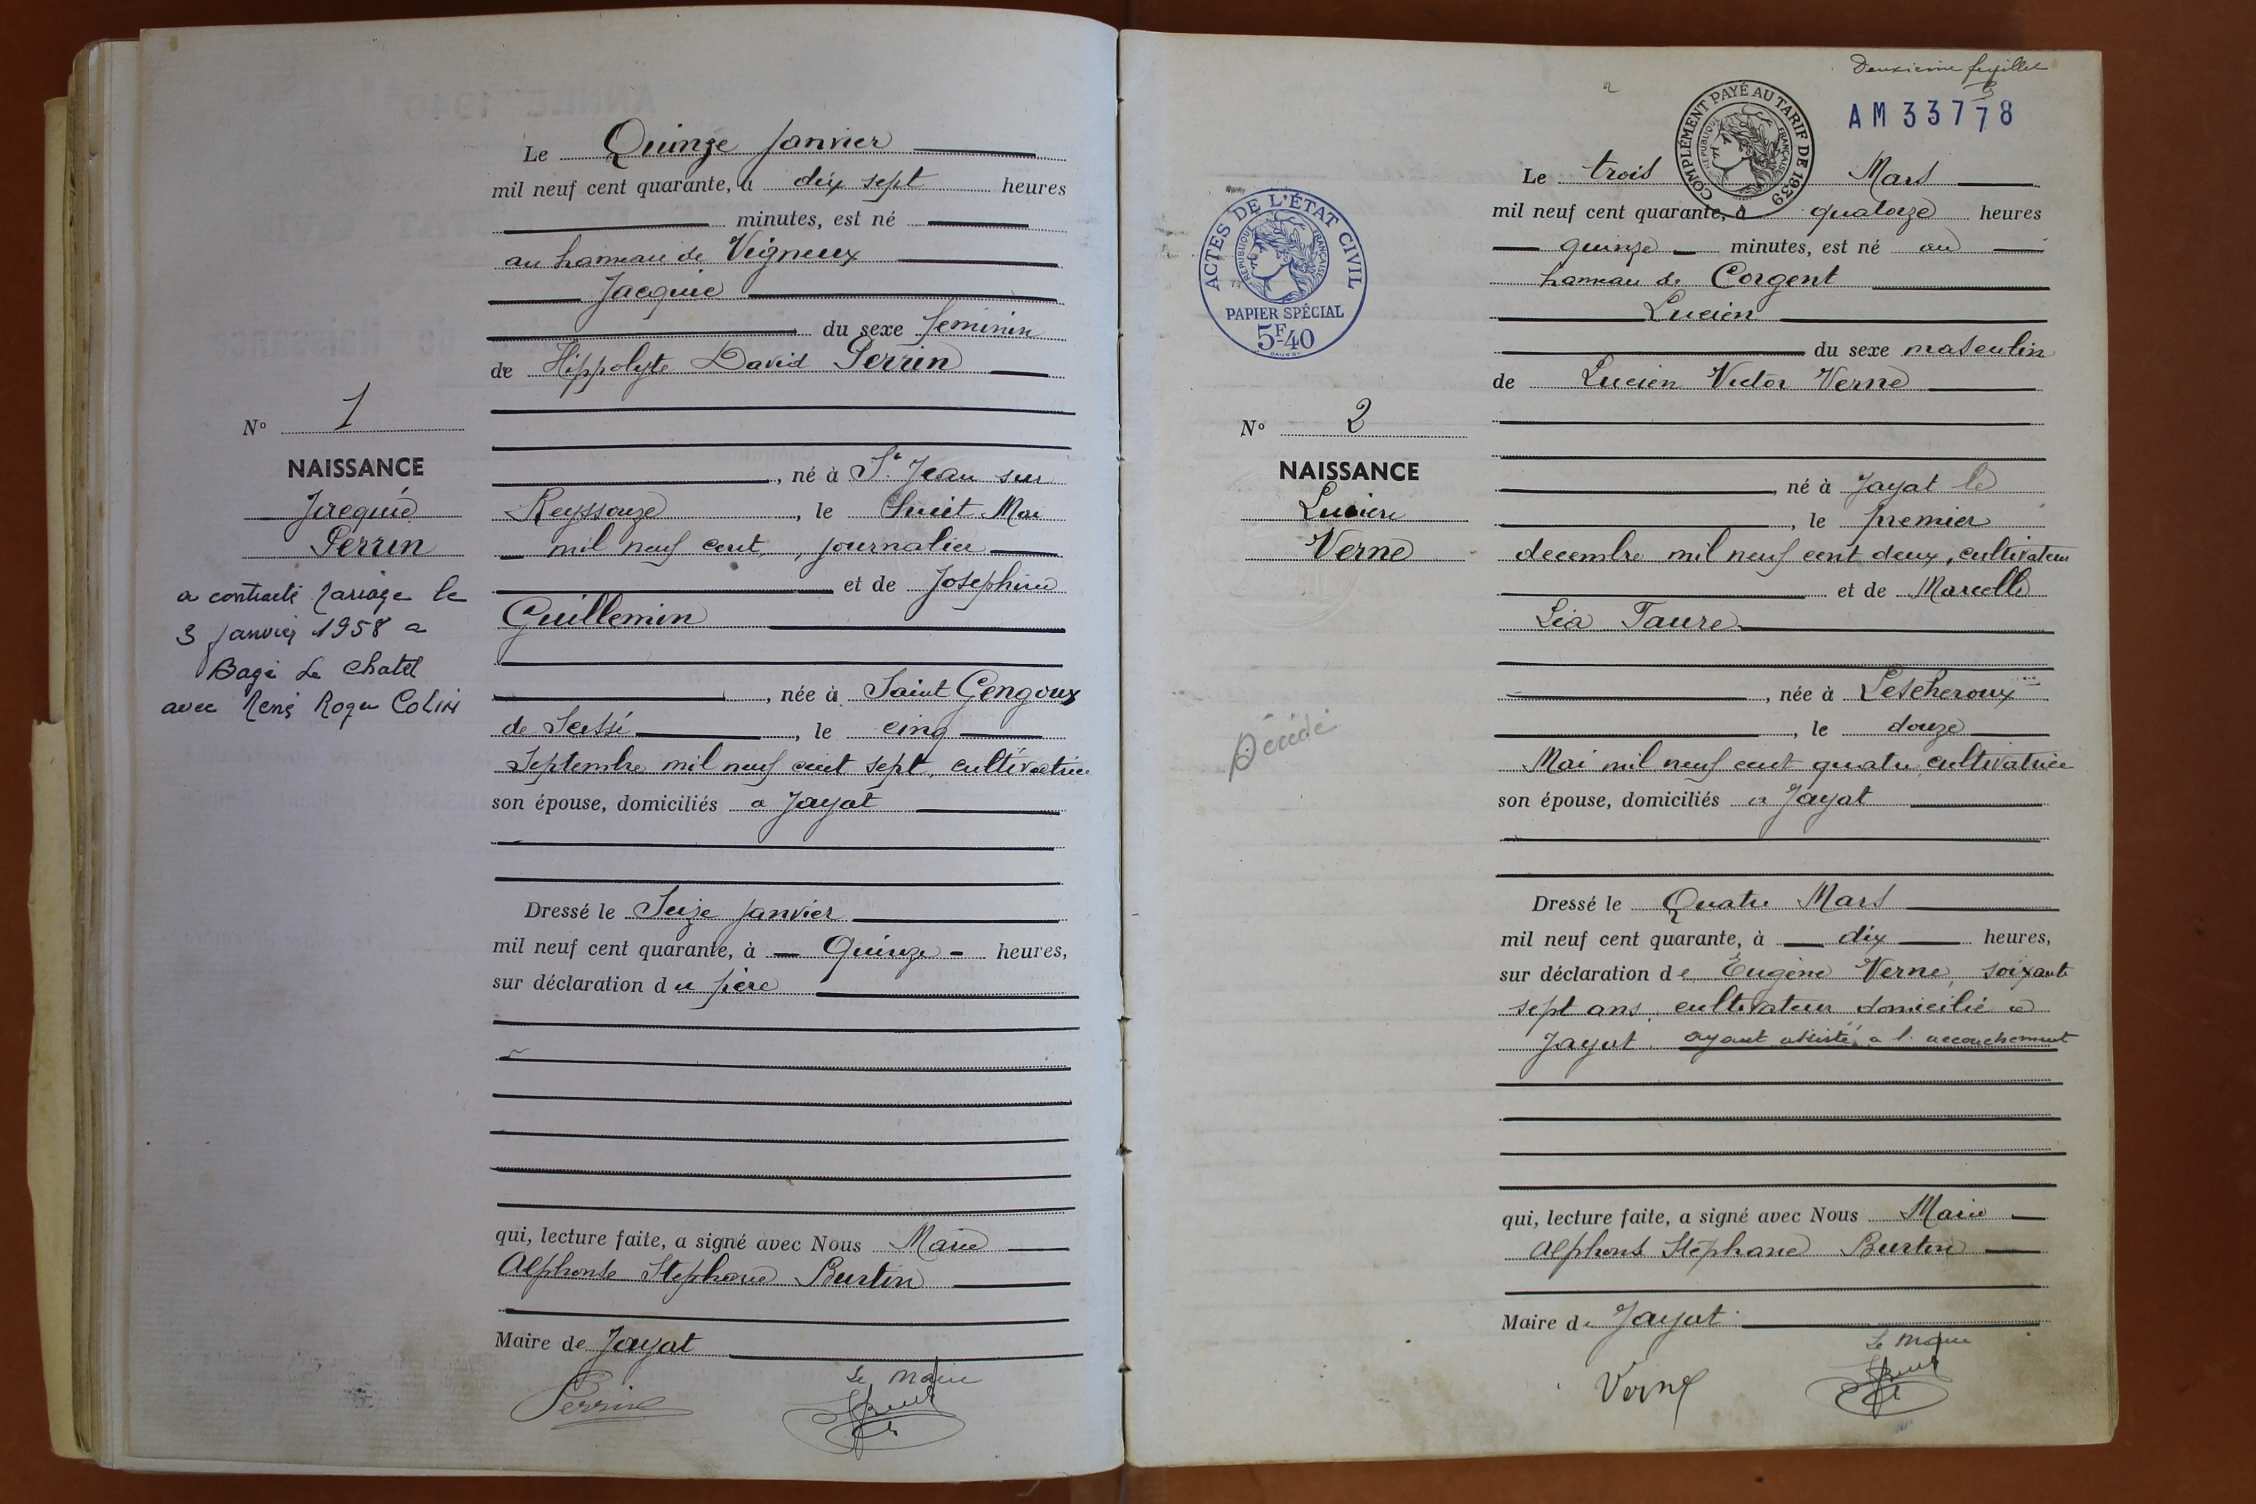 Le Quinze Janvier
mil neuf cent quarante, à dix sept heures
minutes, est né
au hameau de Vigneux
Jacquie
du sexe feminin
de Hippolyte David Perrin
N° 1
NAISSANCE
Jacquie
Perrin
a contracté mariage le
3 janvier 1958 a
Bagé Le Chatel
avec René Roger COLIN
, né à St Jean sur
Reyssouze, le huit Mai
mil neuf cent, journalier
et de Josephine
Guillemin
, née à Saint Gengoux
de Scissé, le cinq
Septembre mil neuf cent sept, cultivatrice
son épouse, domiciliés a Jayat
Dressé le Seize Janvier
mil neuf cent quarante, à Quinze heures,
sur déclaration du père
qui, lecture faite, a signé avec Nous Maire
Alphonse Stephane Burtin
Maire de Jayat
Le Maire
Perrin
Deuxième feuillet
COMPLÉMENT PAYÉ AU TARIF DE 1939
RÉPUBLIQUE FRANÇAISE
AM 33778
ACTES DE L'ÉTAT CIVIL
RÉPUBLIQUE FRANÇAISE
PAPIER SPÉCIAL
5F-40
Le trois Mars
mil neuf cent quarante, à quatorze heures
quinze minutes, est né au
hameau de Corgent
Lucien
du sexe masculin
de Lucien Victor Verne
N° 2
NAISSANCE
Lucien
Verne
Décédé
, né à Jayat le
, le premier
decembre mil neuf cent deux, cultivateur
et de Marcelle
Léa Faure
, née à Lescheroux
, le douze
Mai mil neuf cent quatre, cultivatrice
son épouse, domiciliés a Jayat
Dressé le Quatre Mars
mil neuf cent quarante, à dix heures,
sur déclaration de Eugène Verne, soixante
sept ans, cultivateur domicilié a
Jayat. ayant assisté a l'accouchement
qui, lecture faite, a signé avec Nous Maire
Alphonse Stéphane Burtin
Maire de Jayat
Le Maire
Verne